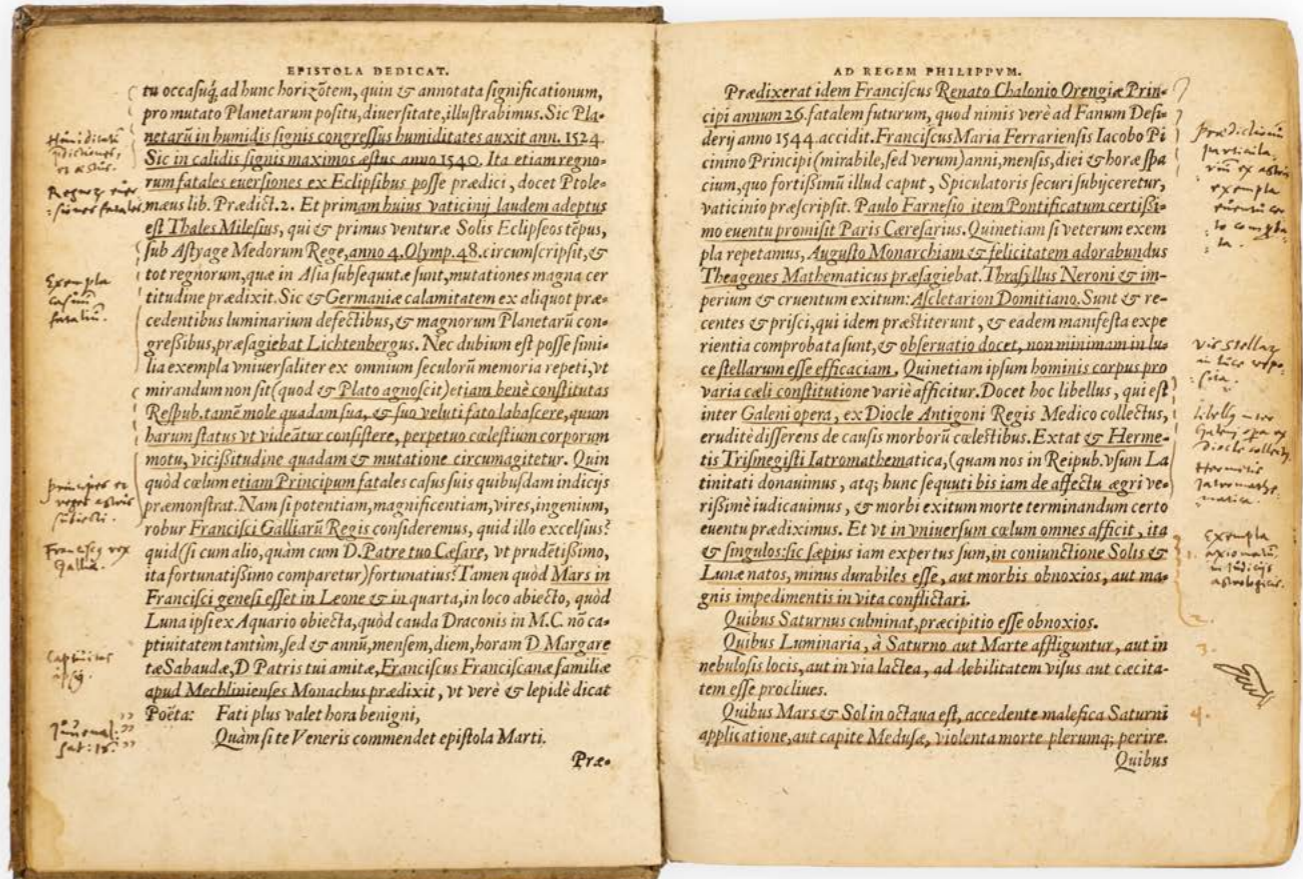 EPISTOLA DEDICAT.
tu occaſuq́, ad hunc horizōtem, quin & annotata ſignificationum,
pro mutato Planetarum poſitu, diuerſitate, illuſtrabimus. Sic Pla-
netarū in humidis ſignis congreſſus humiditates auxit ann. 1524.
Sic in calidis ſignis maximos æſtus anno 1540. Ita etiam regno-
rum fatales euerſiones ex Eclipſibus poſſe prædici, docet Ptole-
mæus lib. Prædict. 2. Et primam huius vaticinij laudem adeptus
eſt Thales Mileſius, qui & primus venturæ Solis Eclipſeos tēpus,
ſub Aſtyage Medorum Rege, anno 4. Olymp. 48. circumſcripſit, &
tot regnorum, quæ in Aſia ſubſequutæ ſunt, mutationes magna cer
titudine prædixit. Sic & Germaniæ calamitatem ex aliquot præ-
cedentibus luminarium defectibus, & magnorum Planetarū con-
greßibus, præſagiebat Lichtenbergus. Nec dubium eſt poſſe ſimi-
lia exempla vniuerſaliter ex omnium ſeculorū memoria repeti, vt
mirandum non ſit (quod & Plato agnoſcit) etiam benè conſtitutas
Reſpub. tamē mole quadam ſua, & ſuo veluti fato labaſcere, quum
harum ſtatus vt videātur conſiſtere, perpetuo cœleſtium corporum
motu, vicißitudine quadam & mutatione circumagitetur. Quin
quòd cœlum etiam Principum fatales caſus ſuis quibuſdam indicijs
præmonſtrat. Nam ſi potentiam, magnificentiam, vires, ingenium,
robur Franciſci Galliarū Regis conſideremus, quid illo excelſius?
quid (ſi cum alio, quàm cum D. Patre tuo Cæſare, vt prudētißimo,
ita fortunatißimo comparetur) fortunatius? Tamen quòd Mars in
Franciſci geneſi eſſet in Leone & in quarta, in loco abiecto, quòd
Luna ipſi ex Aquario obiecta, quòd cauda Draconis in M.C. nō ca-
ptiuitatem tantùm, ſed & annū, menſem, diem, horam D. Margare
tæ Sabaudæ, D Patris tui amitæ, Franciſcus Franciſcanæ familiæ
apud Mechlinienſes Monachus prædixit, vt verè & lepidè dicat
Poëta: Fati plus valet hora benigni,
Quàm ſi te Veneris commendet epiſtola Marti.
Præ-
Exempla
caſuum
fatalium.
principes et
reges astris
subiecti.
AD REGEM PHILIPPVM.
Prædixerat idem Franciſcus Renato Chalonio Orengiæ Prin-
cipi annum 26. fatalem futurum, quod nimis verè ad Fanum Deſi-
derij anno 1544. accidit. Franciſcus Maria Ferrarienſis Iacobo Pi
cinino Principi (mirabile, ſed verum) anni, menſis, diei & horæ ſpa
cium, quo fortißimū illud caput, Spiculatoris ſecuri ſubijceretur,
vaticinio præſcripſit. Paulo Farneſio item Pontificatum certißi-
mo euentu promiſit Paris Cæreſarius. Quinetiam ſi veterum exem
pla repetamus, Auguſto Monarchiam & felicitatem adorabundus
Theagenes Mathematicus præſagiebat. Thraſyllus Neroni & im-
perium & cruentum exitum: Aſcletarion Domitiano. Sunt & re-
centes & priſci, qui idem præſtiterunt, & eadem manifeſta expe
rientia comprobata ſunt, & obſeruatio docet, non minimam in lu-
ce ſtellarum eſſe efficaciam. Quinetiam ipſum hominis corpus pro
varia cæli conſtitutione variè afficitur. Docet hoc libellus, qui eſt
inter Galeni opera, ex Diocle Antigoni Regis Medico collectus,
eruditè diſſerens de cauſis morborū cœleſtibus. Extat & Herme-
tis Triſmegiſti Iatromathematica, (quam nos in Reipub. vſum La
tinitati donauimus, atq; hunc ſequuti bis iam de affectu ægri ve-
rißimè iudicauimus, & morbi exitum morte terminandum certo
euentu prædiximus. Et vt in vniuerſum cœlum omnes afficit, ita
& ſingulos: ſic ſæpius iam expertus ſum, in coniunctione Solis &
Lunæ natos, minus durabiles eſſe, aut morbis obnoxios, aut ma-
gnis impedimentis in vita conflictari.
Quibus Saturnus culminat, præcipitio eſſe obnoxios.
Quibus Luminaria, à Saturno aut Marte affliguntur, aut in
nebuloſis locis, aut in via lactea, ad debilitatem viſus aut cæcita-
tem eſſe procliues.
Quibus Mars & Sol in octaua eſt, accedente malefica Saturni
applicatione, aut capite Meduſæ, violenta morte plerumq; perire.
Quibus
Exempla
axiomatum
in iudicijs
astrologicis.
1.
2.
3.
4.